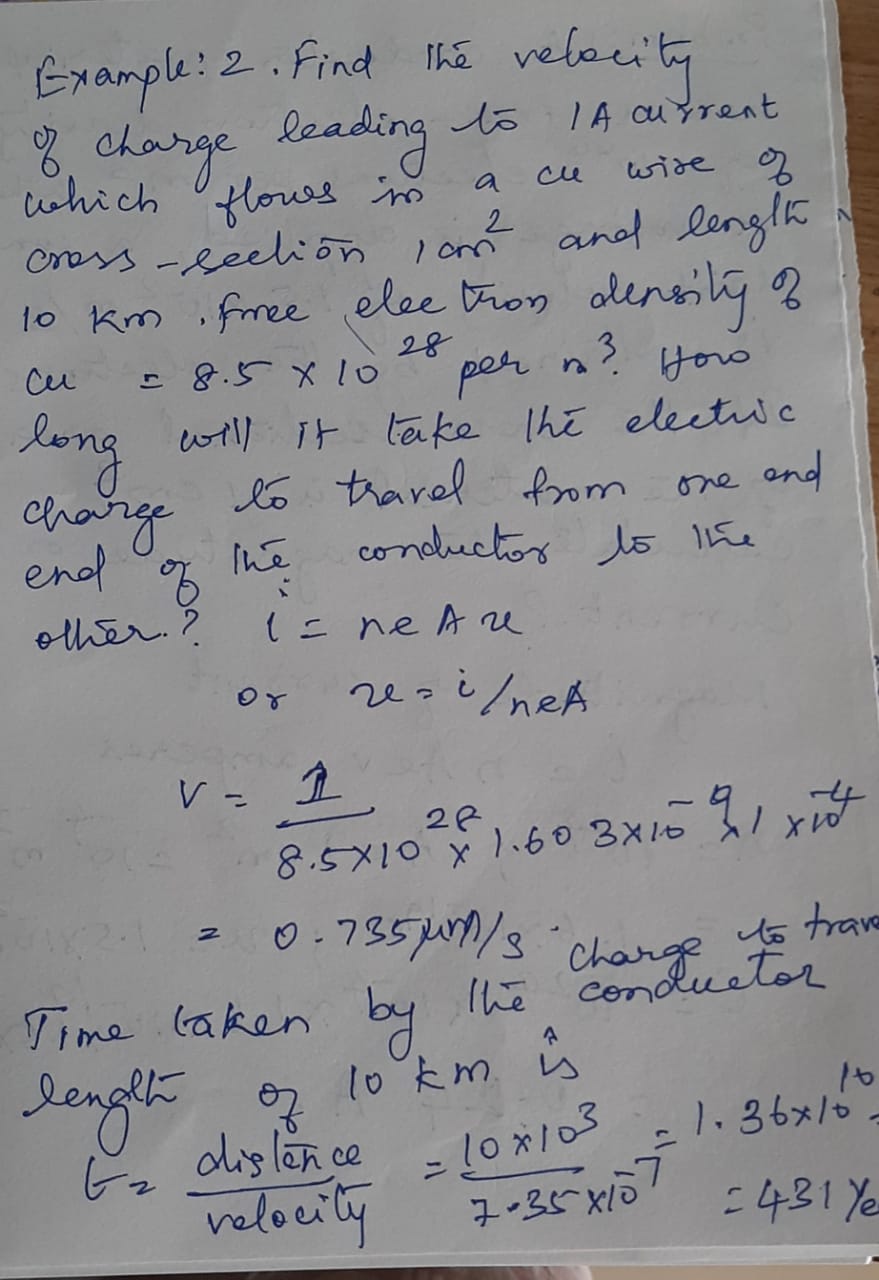 Example: 2. Find the velocity
of charge leading to 1A current
which flows in a cu wire of
cross-section 1 cm² and length
10 km. free electron density of
cu = 8.5 × 10²⁸ per m³? How
long will it take the electric
charge to travel from one end
end of the conductor to the
other.? i = neAu
or u = i/neA
V = 1 / 8.5×10²⁸ × 1.603×10⁻⁹ × 1 × 10⁻⁴
= 0.735 μm/s.
Time taken by the charge to trav
conductor
length of 10 km is
t = distance / velocity = 10×10³ / 7.35×10⁻⁷ = 1.36×10¹⁰
= 431 Ye